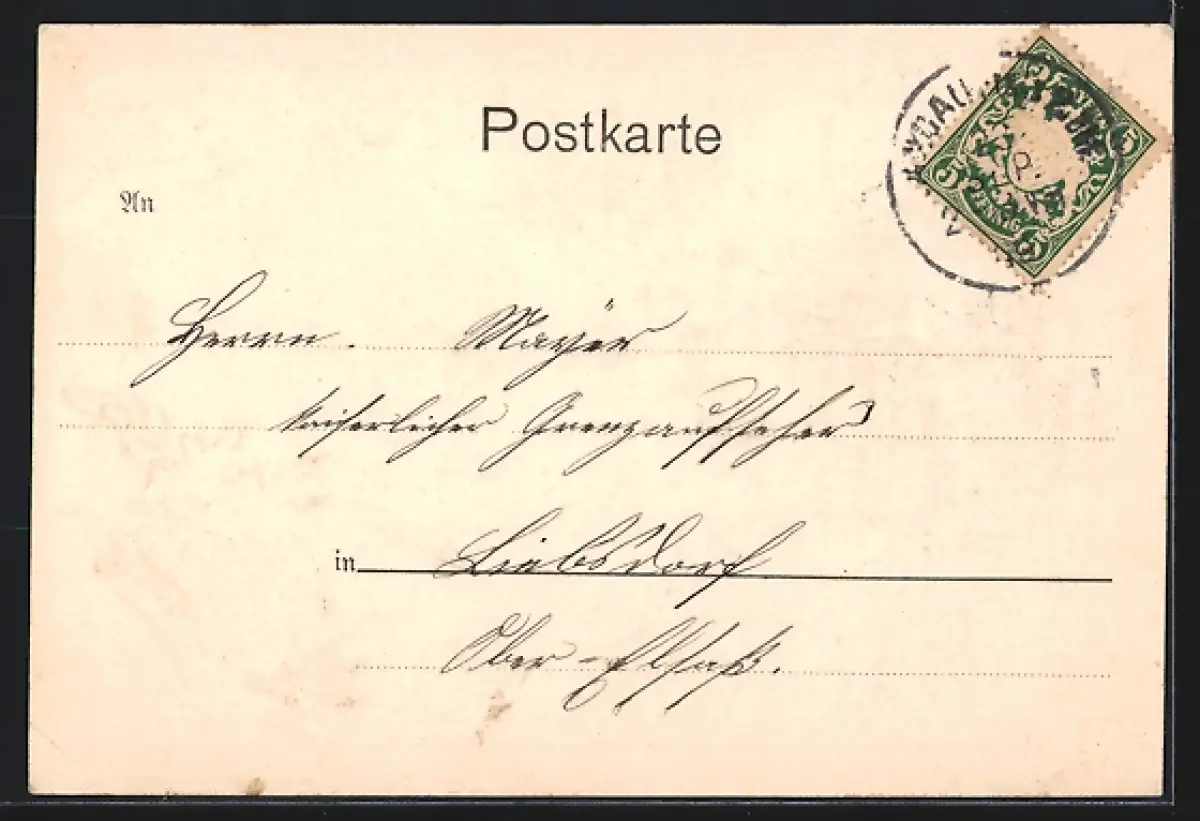 Postkarte
An
Herrn. Mayer
kaiserlicher Grenzaufseher
in Liebsdorf
Ober-Elsaß.
5 5 5